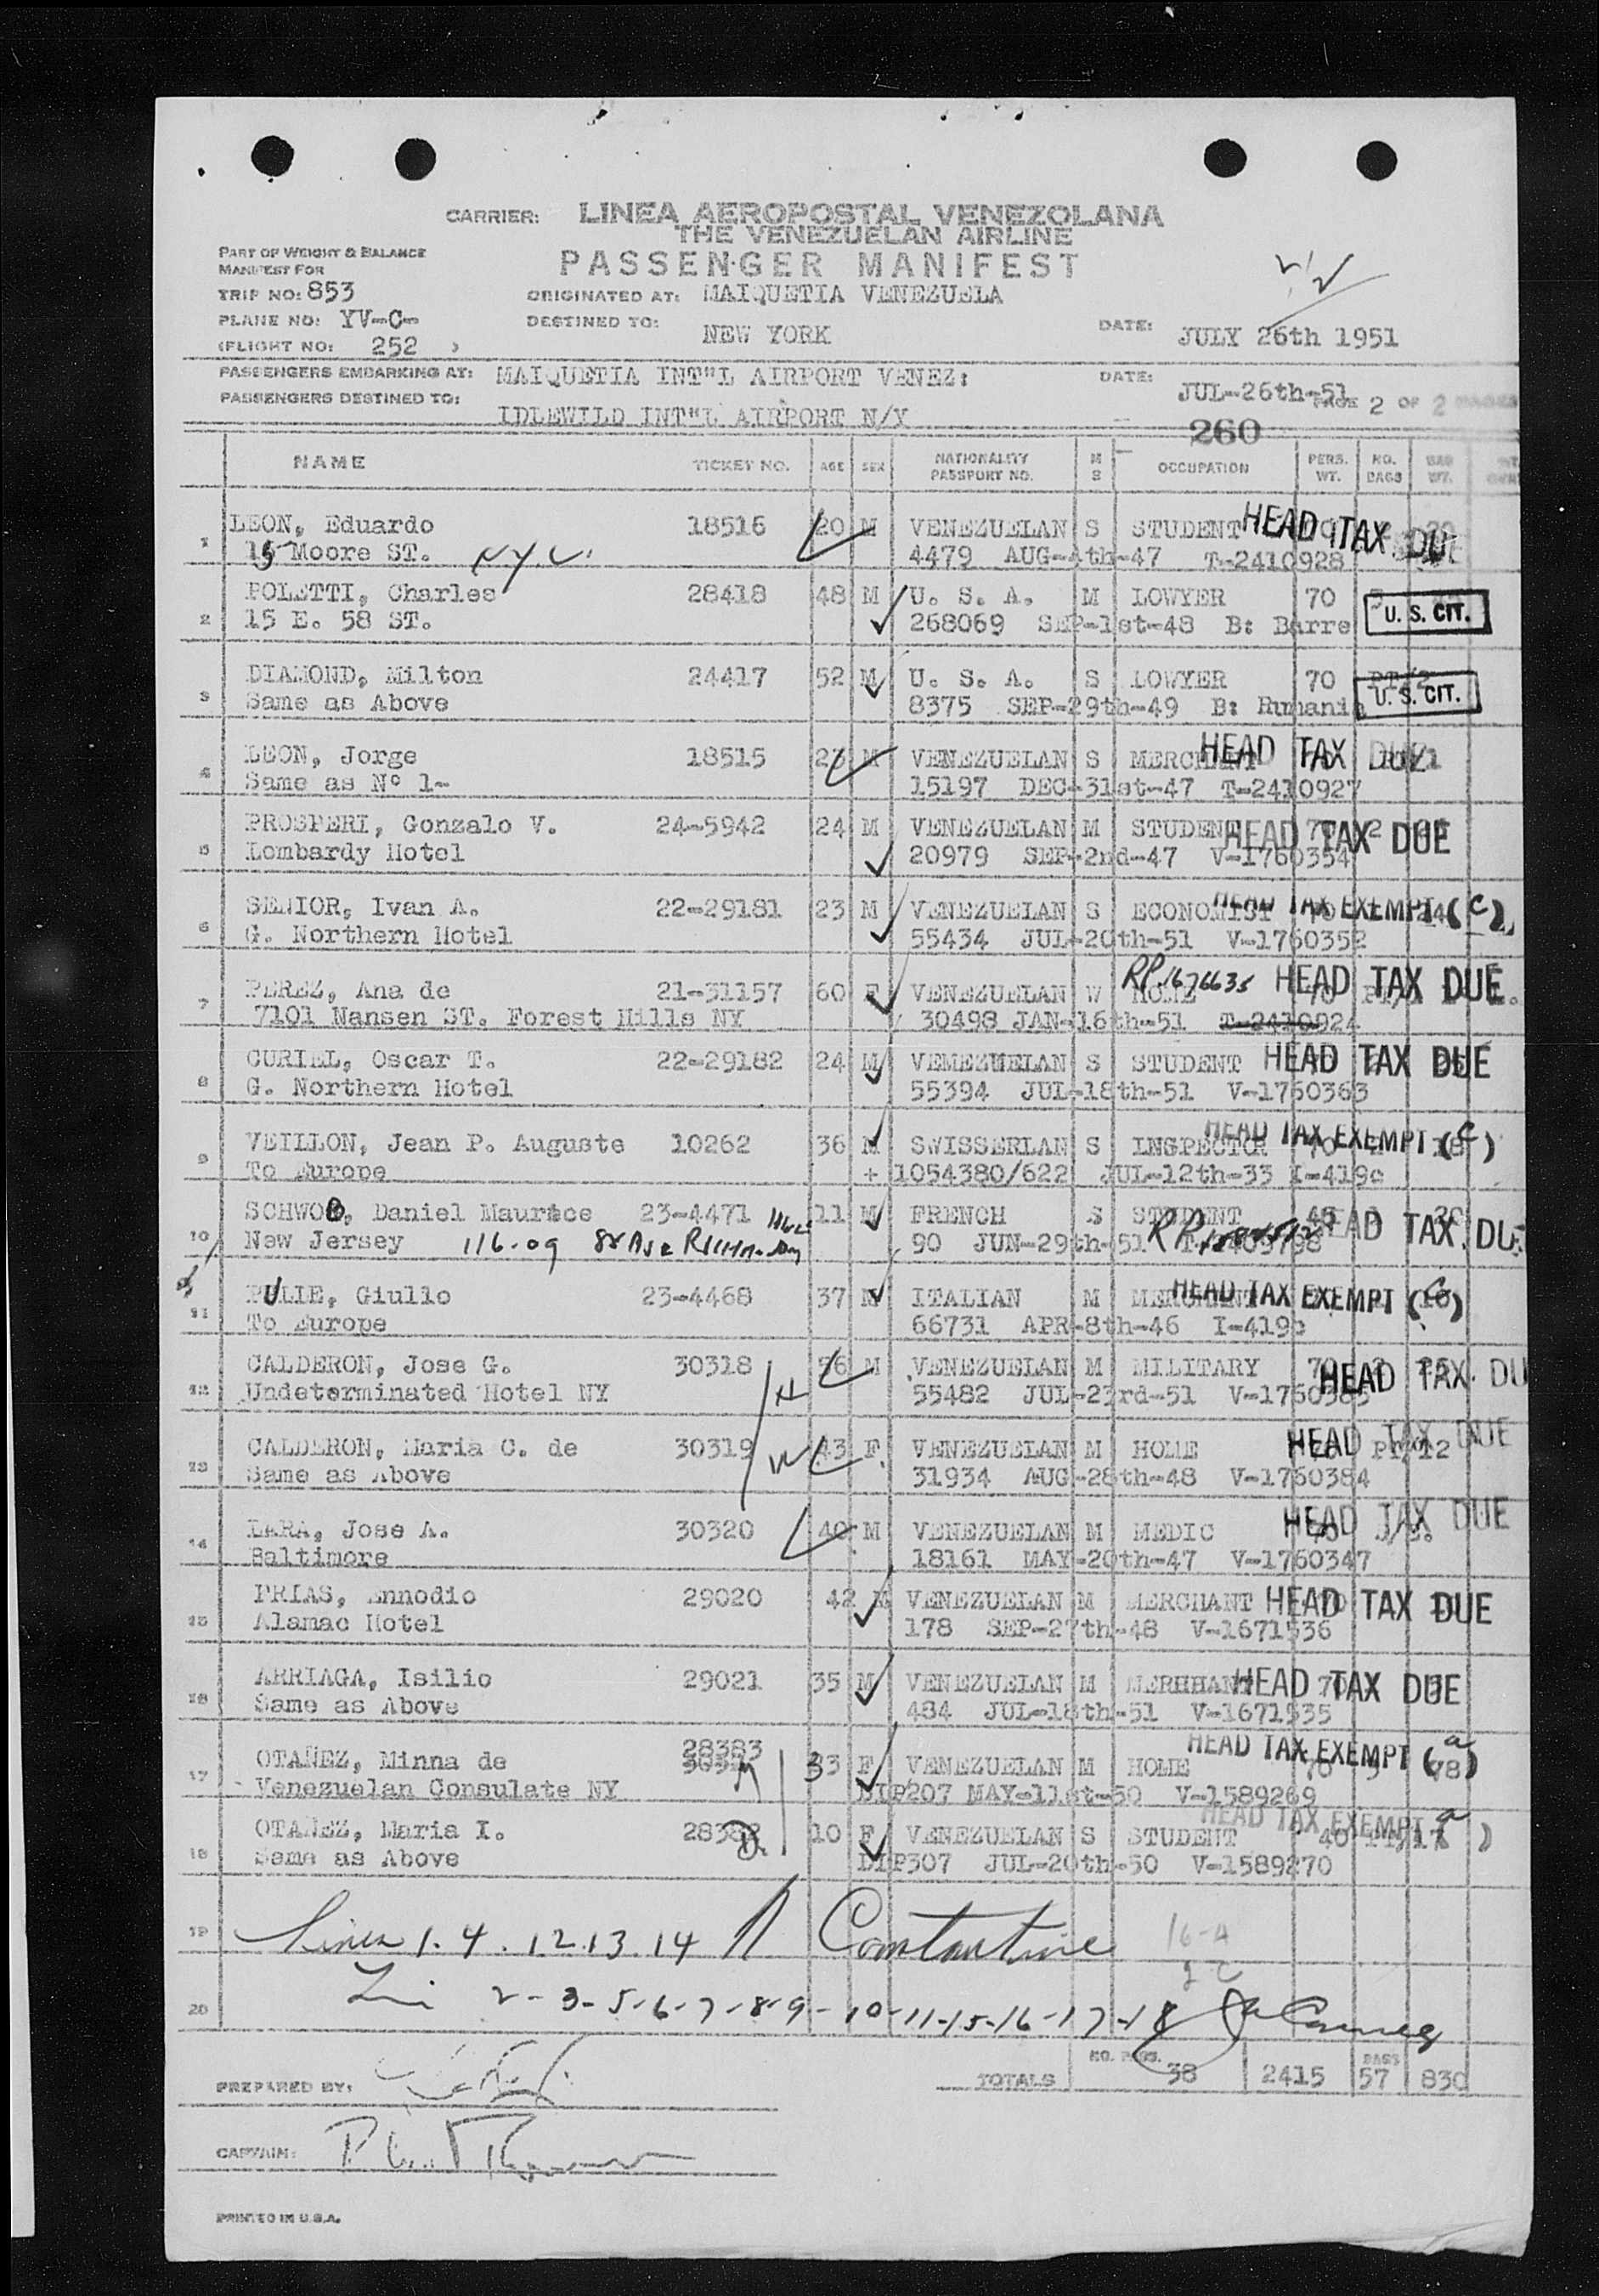 CARRIER: LINEA AEROPOSTAL VENEZOLANA
THE VENEZUELAN AIRLINE
PASSENGER MANIFEST
PART OF WEIGHT & BALANCE
MANIFEST FOR
TRIP NO: 853 ORIGINATED AT: MAIQUETIA VENEZUELA
PLANE NO: YV-C- DESTINED TO: NEW YORK DATE: JULY 26th 1951
(FLIGHT NO: 252 )
PASSENGERS EMBARKING AT: MAIQUETIA INT"L AIRPORT VENEZ: DATE: JUL-26th-51
PASSENGERS DESTINED TO: IDLEWILD INT"L AIRPORT N/Y PAGE 2 OF 2 PAGES
260
NAME TICKET NO. AGE SEX NATIONALITY PASSPORT NO. M S OCCUPATION PERS. WT. NO. BAGS BAG WT.
1 LEON, Eduardo 18516 20 M VENEZUELAN S STUDENT HEAD TAX DUE
15 Moore ST. N.Y.C. 4479 AUG-4th-47 T-2410928
2 POLETTI, Charles 28418 48 M U. S. A. M LOWYER 70
15 E. 58 ST. 268069 SEP-1st-48 B: Barre U. S. CIT.
3 DIAMOND, Milton 24417 52 M U. S. A. S LOWYER 70 PT/2
Same as Above 8375 SEP-29th-49 B: Rumania U. S. CIT.
4 LEON, Jorge 18515 23 M VENEZUELAN S MERCHANT HEAD TAX DUE
Same as Nº 1- 15197 DEC-31st-47 T-2410927
5 PROSPERI, Gonzalo V. 24-5942 24 M VENEZUELAN M STUDENT 70 2 HEAD TAX DUE
Lombardy Hotel 20979 SEP-2nd-47 V-1760354
6 SENIOR, Ivan A. 22-29181 23 M VENEZUELAN S ECONOMIST 70 24 HEAD TAX EXEMPT (c)
G. Northern Hotel 55434 JUL-20th-51 V-1760352
7 PEREZ, Ana de 21-31157 60 F VENEZUELAN W HOME RP 1676635 HEAD TAX DUE
7101 Nansen ST. Forest Hills NY 30498 JAN-16th-51 T-2410924
8 CURIEL, Oscar T. 22-29182 24 M VEMEZUELAN S STUDENT HEAD TAX DUE
G. Northern Hotel 55394 JUL-18th-51 V-1760363
9 VEILLON, Jean P. Auguste 10262 36 M SWISSERLAN S INSPECTOR 70 18 HEAD TAX EXEMPT (c)
To Europe + 1054380/622 JUL-12th-33 I-419c
10 SCHWOB, Daniel Maurice 23-4471 11 M FRENCH S STUDENT 45 20 HEAD TAX DUE
New Jersey 116-09 90 JUN-29th-51 RP T-2409798
11 PULIE, Giulio 23-4468 37 M ITALIAN M MERCHANT HEAD TAX EXEMPT (c)
To Europe 66731 APR-8th-46 I-419c
12 CALDERON, Jose G. 30318 H 56 M VENEZUELAN M MILITARY 70 HEAD TAX DU
Undeterminated Hotel NY 55482 JUL-23rd-51 V-1760385
13 CALDERON, Maria C. de 30319 W 43 F VENEZUELAN M HOME PT/12 HEAD TAX DUE
Same as Above 31934 AUG-28th-48 V-1760384
14 LARA, Jose A. 30320 40 M VENEZUELAN M MEDIC HEAD TAX DUE
Baltimore 18161 MAY-20th-47 V-1760347
15 FRIAS, Ennodio 29020 42 M VENEZUELAN M MERCHANT 70 HEAD TAX DUE
Alamac Hotel 178 SEP-27th-48 V-1671536
16 ARRIAGA, Isilio 29021 35 M VENEZUELAN M MERHHANT 70 HEAD TAX DUE
Same as Above 484 JUL-18th-51 V-1671535
17 OTAÑEZ, Minna de 28383 M 33 F VENEZUELAN M HOME 70 78 HEAD TAX EXEMPT (a)
Venezuelan Consulate NY DIP207 MAY-11st-50 V-1589269
18 OTAÑEZ, Maria I. 28382 D. 10 F VENEZUELAN S STUDENT 40 HEAD TAX EXEMPT (a)
Same as Above DIP307 JUL-20th-50 V-1589270
19 Lines 1. 4. 12. 13. 14 Constantine 16-A
20 Li 2-3-5-6-7-8-9-10-11-15-16-17-18
TOTALS NO. PASS. 38 2415 BAGS 57 830
PREPARED BY:
CAPTAIN:
PRINTED IN U.S.A.